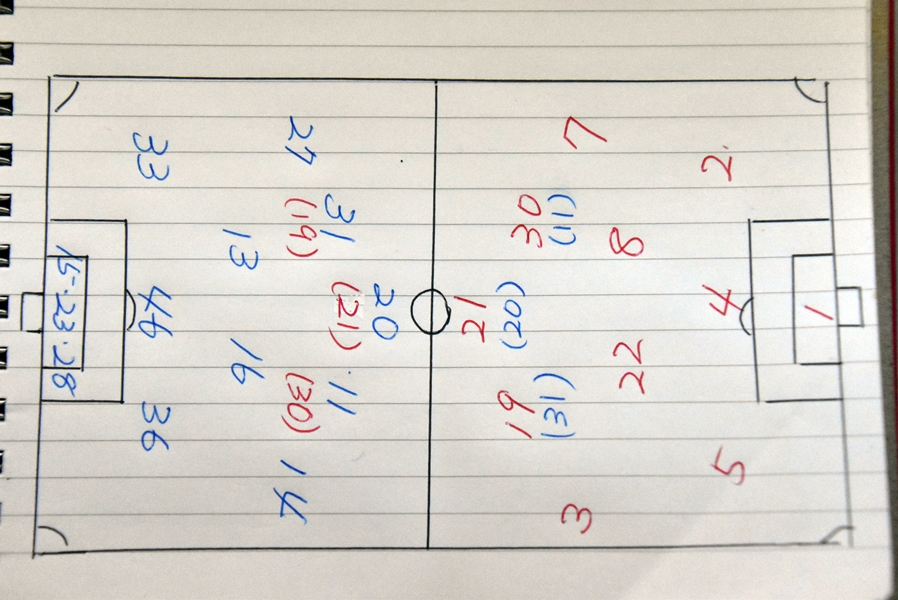 33
27
31
(19)
13
15·23·28
46
20
(21)
16
11
(30)
36
14
7
2
30
(11)
8
21
(20)
4
1
22
19
(31)
5
3